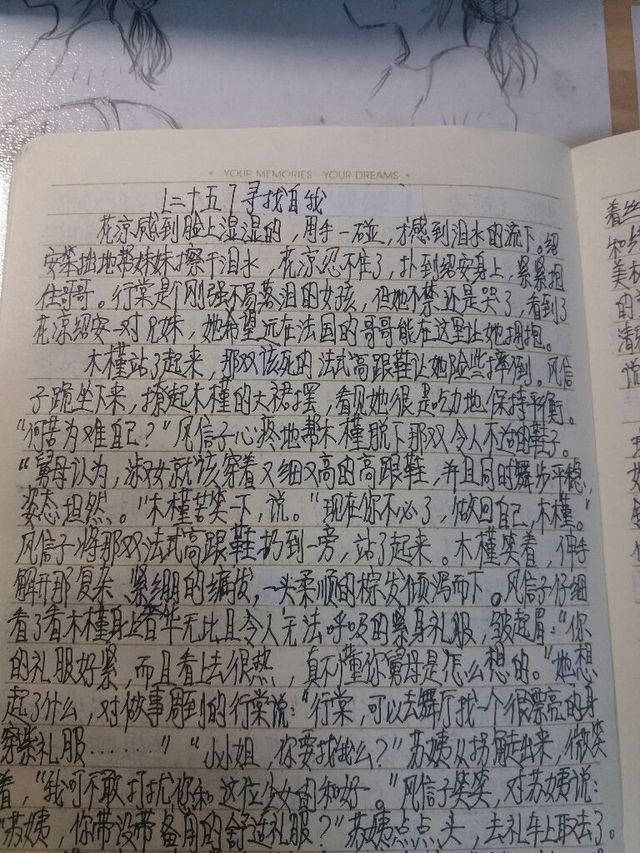 YOUR MEMORIES YOUR DREAMS
二十五 寻找自我
花凉感到脸上湿湿的，用手一碰，才感到泪水的流下。绍
安笨拙地帮妹妹擦干泪水，花凉忍不住了，扑到绍安身上，紧紧抱
住哥哥。行棠是个刚强不易落泪的女孩，但她不禁还是哭了，看到了
花凉绍安一对兄妹，她希望远在法国的哥哥能在这里让她拥抱。
木槿站了起来，那双该死的法式高跟鞋让她险些摔倒。风信
子跪坐下来，撩起木槿的大裙摆，看见她很是吃力地保持平衡。
“何苦为难自己？”风信子心疼地帮木槿脱下那双令人不治的鞋子。
“舅母认为，淑女就该穿着又细又高的高跟鞋，并且同时舞步平稳，
姿态坦然。”木槿苦笑一下，说。“现在你不必了，做回自己，木槿。”
风信子将那双法式高跟鞋扔到一旁，站了起来。木槿笑着，伸手
解开那复杂、紧绷的编发，一头柔顺的棕发倾泻而下。风信子仔细
看了看木槿身上奢华无比且令人无法呼吸的紧身礼服，皱起眉：“你
的礼服好紧，而且看上去很热，真不懂你舅母是怎么想的。”她想
起了什么，对做事周到的行棠说：“行棠，可以去舞厅找一个很漂亮的身
穿紫礼服……”“小小姐，你要找我么？”苏姨从拐角走出来，微笑
着，“我可不敢打扰你和这位少女的和好。”风信子笑笑，对苏姨说：
“苏姨，你带没带备用的舒适礼服？”苏姨点点头，去礼车上取去了。